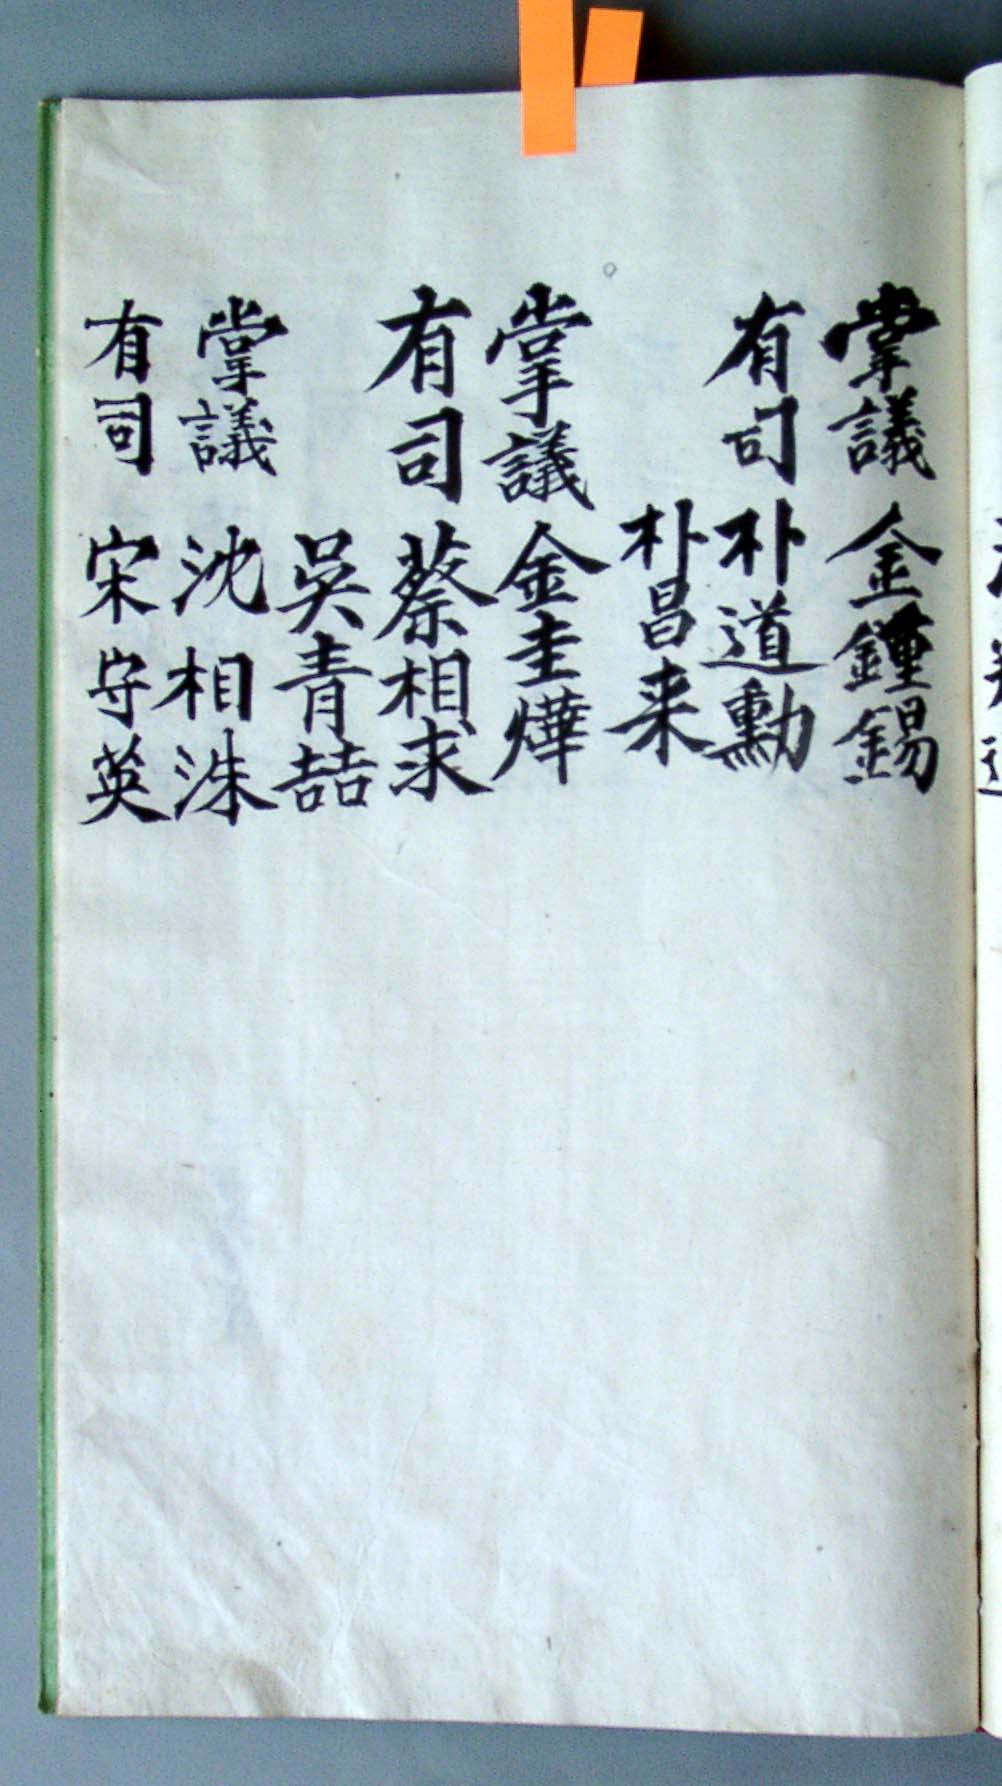 掌議 金鍾錫
有司 朴道勳
朴昌来
掌議 金圭燁
有司 蔡相求
吳青喆
掌議 沈相洙
有司 宋守英